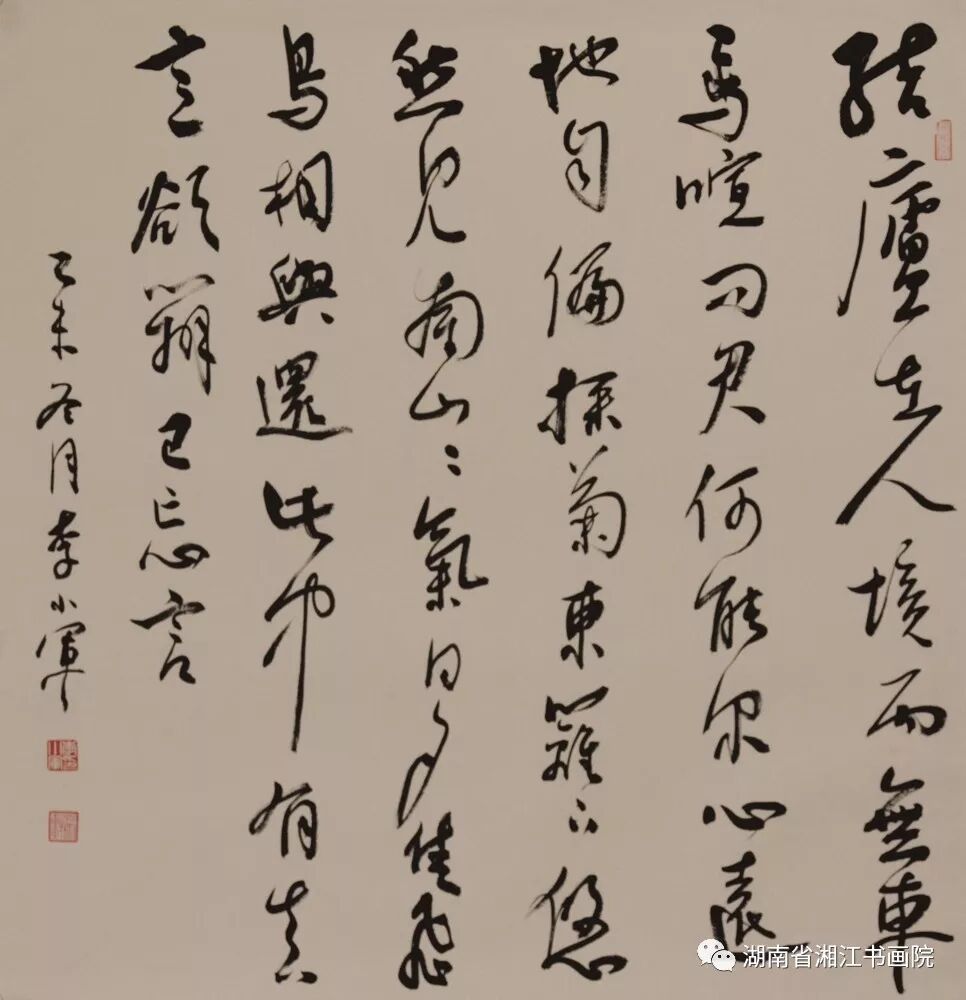 結廬在人境而無車
馬喧問君何能尔心遠
地自偏採菊東籬下悠
然見南山〻氣日夕佳飛
鳥相與還此中有真
意欲辯已忘言
乙未冬月李小軍
湖南省湘江书画院